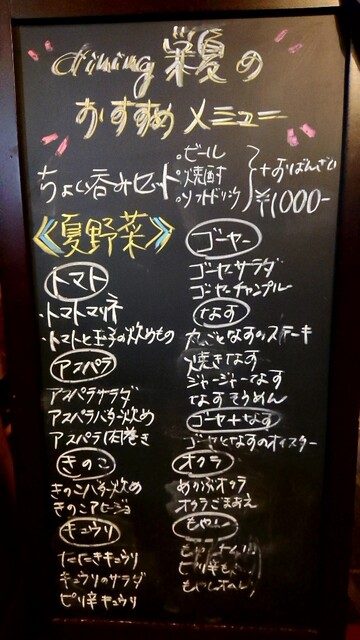 dining 栄夏の
おすすめメニュー
ちょい呑みセット
・ビール
・焼酎
・ソフトドリンク
+おばんざい
¥1000-
《夏野菜》
トマト
・トマトマリネ
・トマトと玉子の炊めもの
アスパラ
アスパラサラダ
アスパラバター炊め
アスパラ肉巻き
きのこ
きのこバター炊め
きのこアヒージョ
キュウリ
たたきキュウリ
キュウリのサラダ
ピリ辛キュウリ
ゴーヤー
ゴーヤーサラダ
ゴーヤーチャンプルー
なす
丸ごとなすのステーキ
焼きなす
ジャージャーなす
なすそうめん
ゴーヤ+なす
ゴーヤとなすのオイスター
オクラ
めかぶオクラ
オクラごまあえ
もやし
もやし
ピリ辛もやし
もやしオムレツ